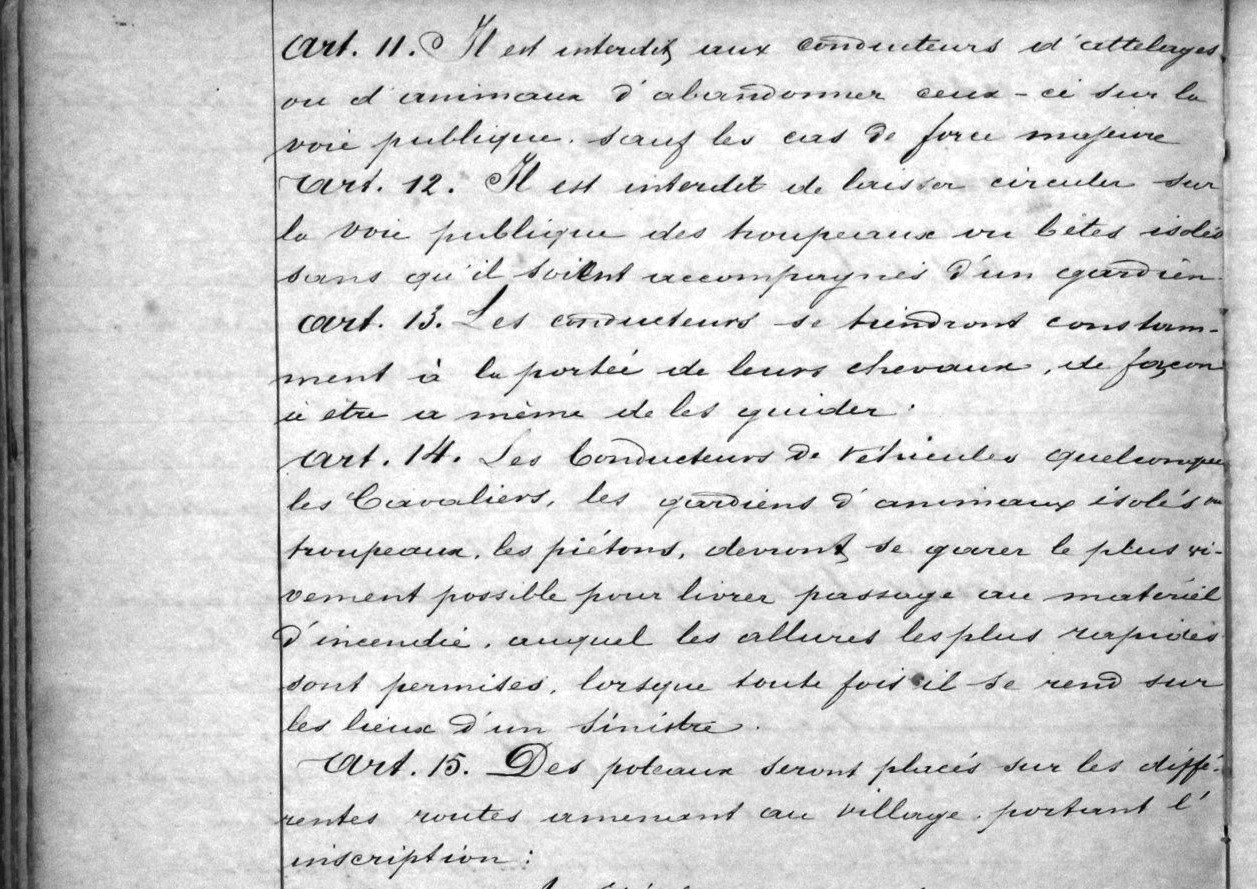 Art. 11. Il est interdit aux conducteurs d'attelages
ou d'animaux d'abandonner ceux-ci sur la
voie publique. sauf les cas de force majeure
Art. 12. Il est interdit de laisser circuler sur
la voie publique des troupeaux ou bêtes isolés
sans qu'il soient accompagnés d'un gardien.
Art. 13. Les conducteurs se tiendront constam-
ment à la portée de leurs chevaux, de façon
à etre a même de les guider.
Art. 14. Les Conducteurs de véhicules quelconque
les Cavaliers, les gardiens d'animaux isolés ou
troupeaux, les piétons, devront se garer le plus vi-
vement possible pour livrer passage au matériel
d'incendie, auquel les allures les plus rapides
sont permises, lorsque toute fois il se rend sur
les lieux d'un sinistre.
Art. 15. Des poteaux seront placés sur les diffé-
rentes routes amenant au village, portant l'
inscription: